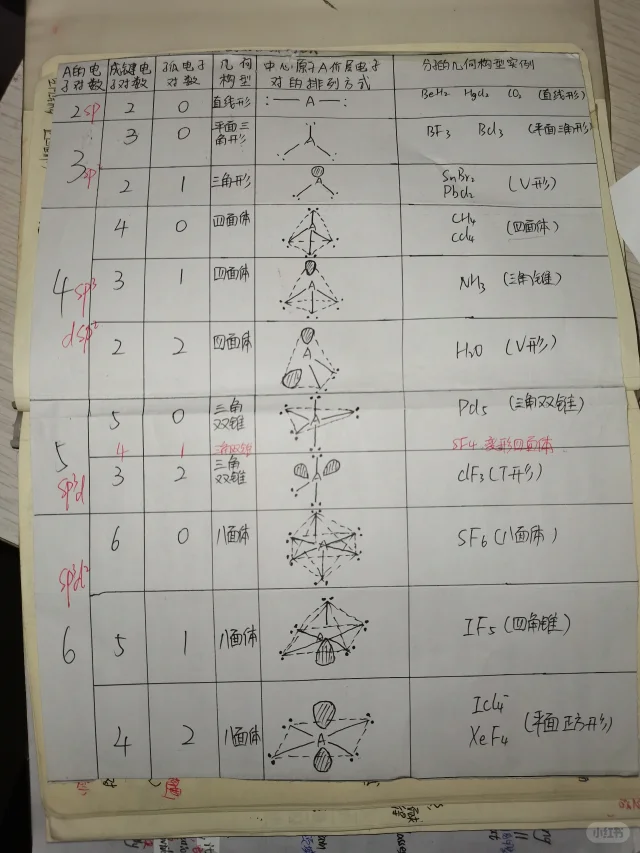 A的电子对数 成键电子对数 孤电子对数 几何构型 中心原子A价层电子对的排列方式 分子的几何构型实例
2 sp 2 0 直线形 :—A—: BeH₂ HgCl₂ CO₂ (直线形)
3 sp² 3 0 平面三角形 A BF₃ BCl₃ (平面三角形)
2 1 三角形 A SnBr₂ PbCl₂ (V形)
4 sp³ dsp² 4 0 四面体 A CH₄ CCl₄ (四面体)
3 1 四面体 A NH₃ (三角锥)
2 2 四面体 A H₂O (V形)
5 sp³d 5 0 三角双锥 A PCl₅ (三角双锥)
4 1 三角双锥 SF4 变形四面体
3 2 三角双锥 A ClF₃ (T形)
6 sp³d² 6 0 八面体 A SF₆ (八面体)
5 1 八面体 A IF₅ (四角锥)
4 2 八面体 A ICl₄⁻ XeF₄ (平面正方形)
小红书